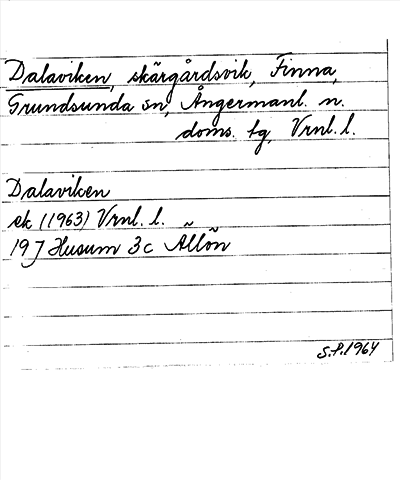 Dalaviken, skärgårdsvik, Finna,
Grundsunda sn, Ångermanl. n.
doms. tg, Vrnl. l.
Dalaviken
ek (1963) Vrnl. l.
19 J Husum 3 c Ällön
S.P. 1964